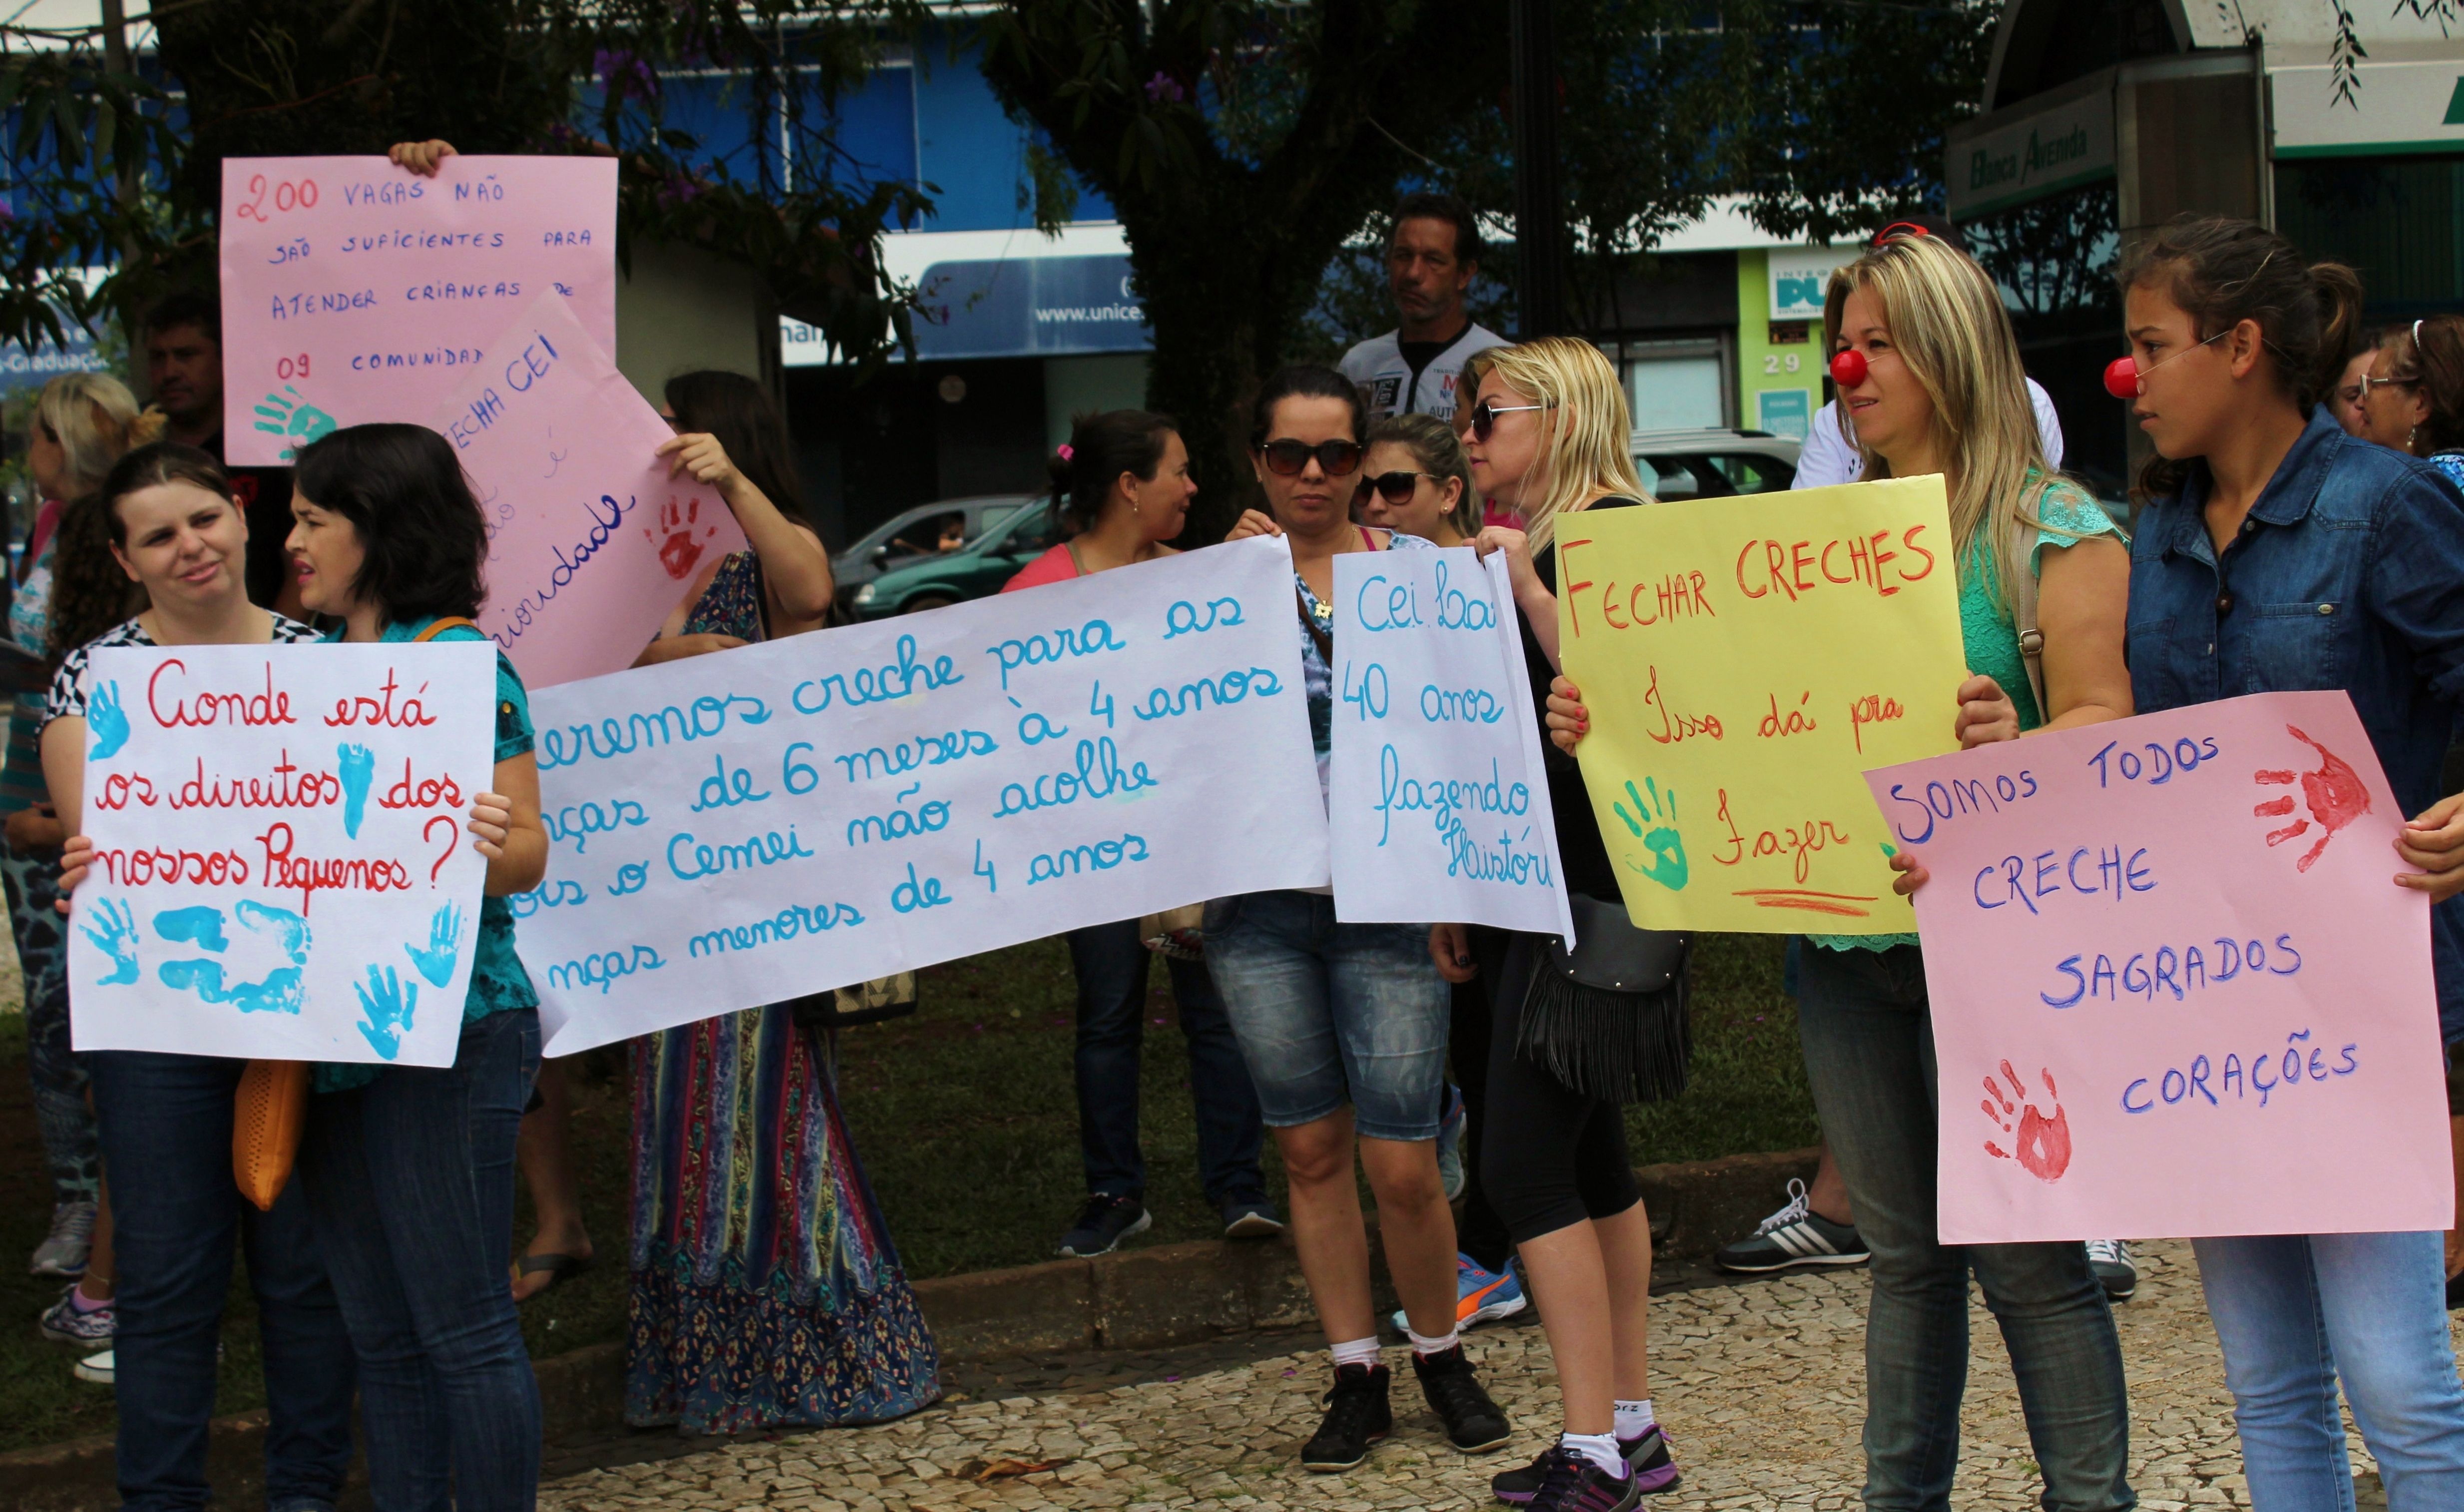 200 VAGAS NÃO
SÃO SUFICIENTES PARA
ATENDER CRIANÇAS DE
09 COMUNIDAD
FECHA CEI
não é
rioridade
Aonde está
os direitos dos
nossos Pequenos?
eremos creche para as
nças de 6 meses à 4 anos
ois o Cemei não acolhe
nças menores de 4 anos
C.e.i. La
40 anos
fazendo
Históri
FECHAR CRECHES
Isso dá pra
Fazer
SOMOS TODOS
CRECHE
SAGRADOS
CORAÇÕES
www.unice
-Graduação
Banca Avenida
INTEG
PU
29